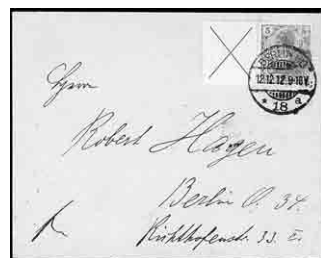 5
BERLIN
12.12.12.9-10V.
* 18 a
Herrn
Robert Hagen
Berlin O. 34.
Richthofenstr. 33. I.